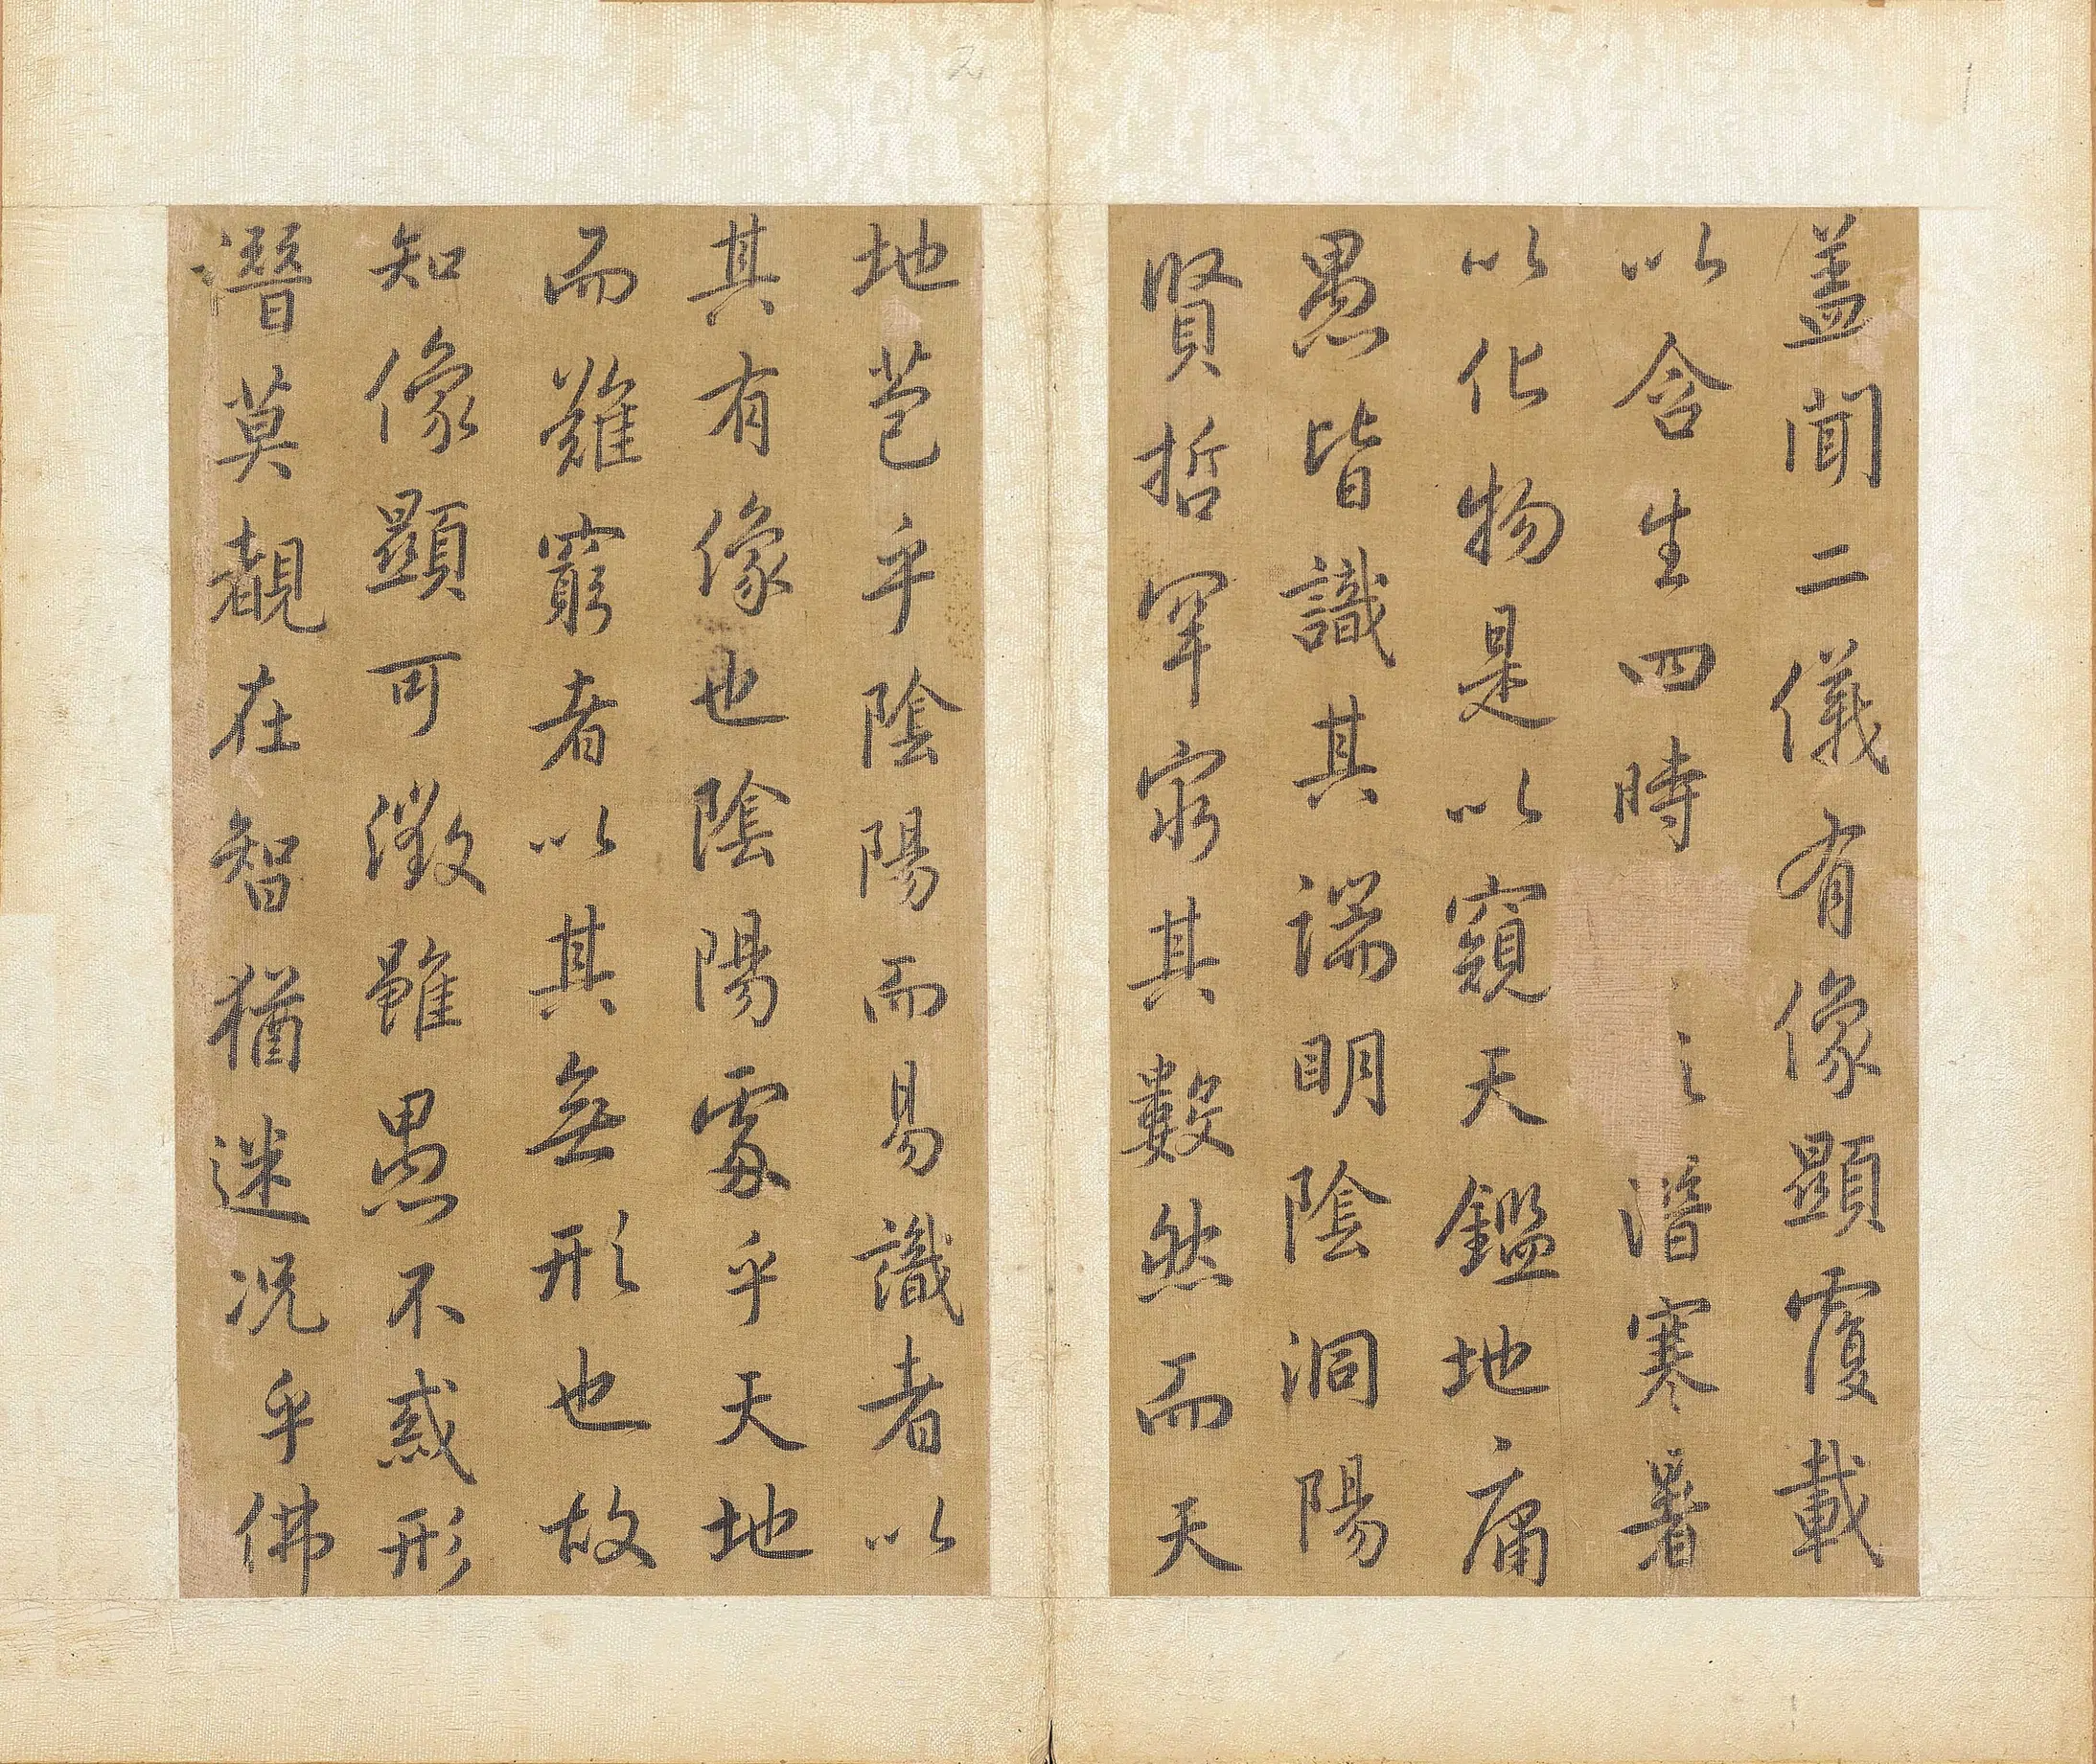 蓋聞二儀有像顯覆載
以含生四時潛寒暑
以化物是以窺天鑑地庸
愚皆識其端明陰洞陽
賢哲罕窮其數然而天
地苞乎陰陽而易識者以
其有像也陰陽處乎天地
而難窮者以其無形也故
知像顯可徵雖愚不惑形
潛莫覩在智猶迷况乎佛
2
1